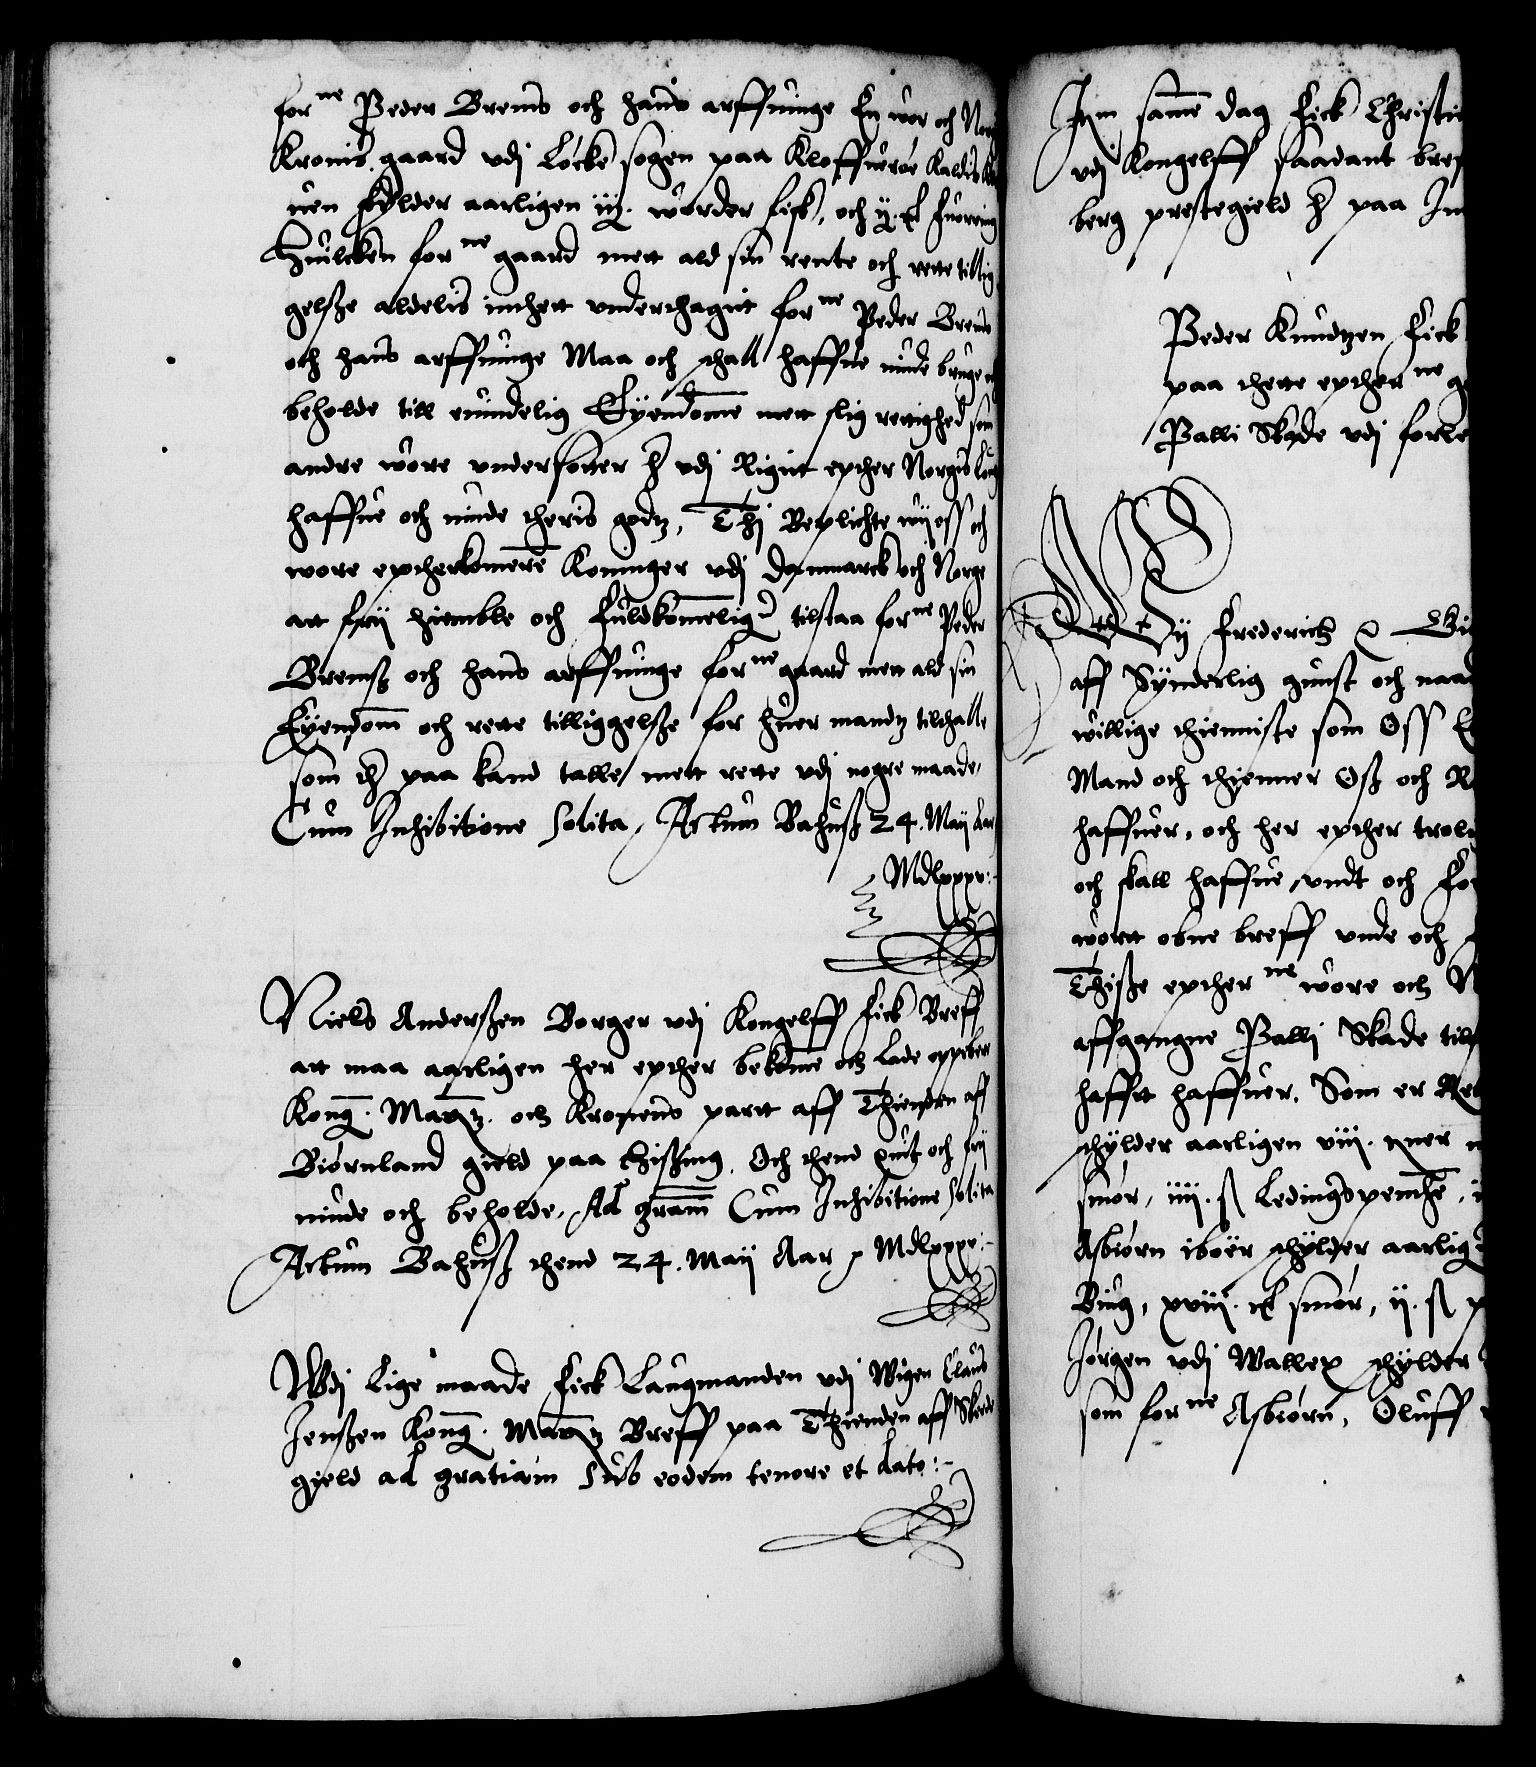 forne Peder Brems och hans arffuinge En wor och Norg
Kronis gaard vdj Locke sogen paa Kloffueröe Kaldis
uen skylder aarligen iij. worder fisk, och ij. 
Huilcken forne gaard mett ald sin rente och rette tillig
gelsze aldelis inthett vnderthagit forne Peder Brems
och hans arffuinge Maa och schall haffue niude bruge och
beholde till euindelig Eyendome mett slig rettighed som
andre wore vndersotter  vdj Rigitt epther Norgis Loug
haffue och niude theris godtz, Thj Beplichte wij oss och
wore eptherkomere Koninger vdj Danmarck och Norge
att frij hiemble och fuldkomelig tilstaa forne Peder
Bremsz och hans arffuinge forne gaard mett ald sin
Eyendom och rette tilliggelsze for huer mandz tilthalle
som  paa kand talle mett rette vdj nogre maade,
Cum Inhibitione solita, Actum Bahusz 24. Maij Aar
Mdlxxxv:
Niels Anderszen Borger vdj Kongelff fick Breff
att maa aarligen her epther bekome och lade oppeber
Kong. Maytz. och Kronens partt aff Thienden aff
Biörnland gield paa Hiszing, Och thend quit och frij
niude och beholde, Ad gram Cum Inhibitione solita
Actum Bahusz thend 24. Maij Aar  Mdlxxxv:
Wdj Lige maade fick Laugmanden vdj Wigen Claus
Jenszen Kong. Maytz Breff paa Thienden aff Skede
gield ad gratiam sub eodem tenore et dato:
Item same dag fick Christi
vdj Kongelff saadant bref
berg prestegield  paa In
Peder Knudtzen fick
paa thette epther ne g
Palli Skade vdj forle
Wy Frederich
aff Synderlig gunst och naad
willige thienniste som Oss E
Mand och thienner Osz och R
haffuer, och her epther trol
och skall haffue vndt och For
wortt obne breff vnde och
Thisze epther ne wore och N
affgangne Palli Skade till
hafft haffuer. Som er
schylder aarligen viij.
smör, iiij. Ledingspenthe,
Asbiörn iboer schylder aarlig
Biug, xviij. smör, ij.
Jörgen vdj Wallex schylder
som forne Asbiörn, Oluff